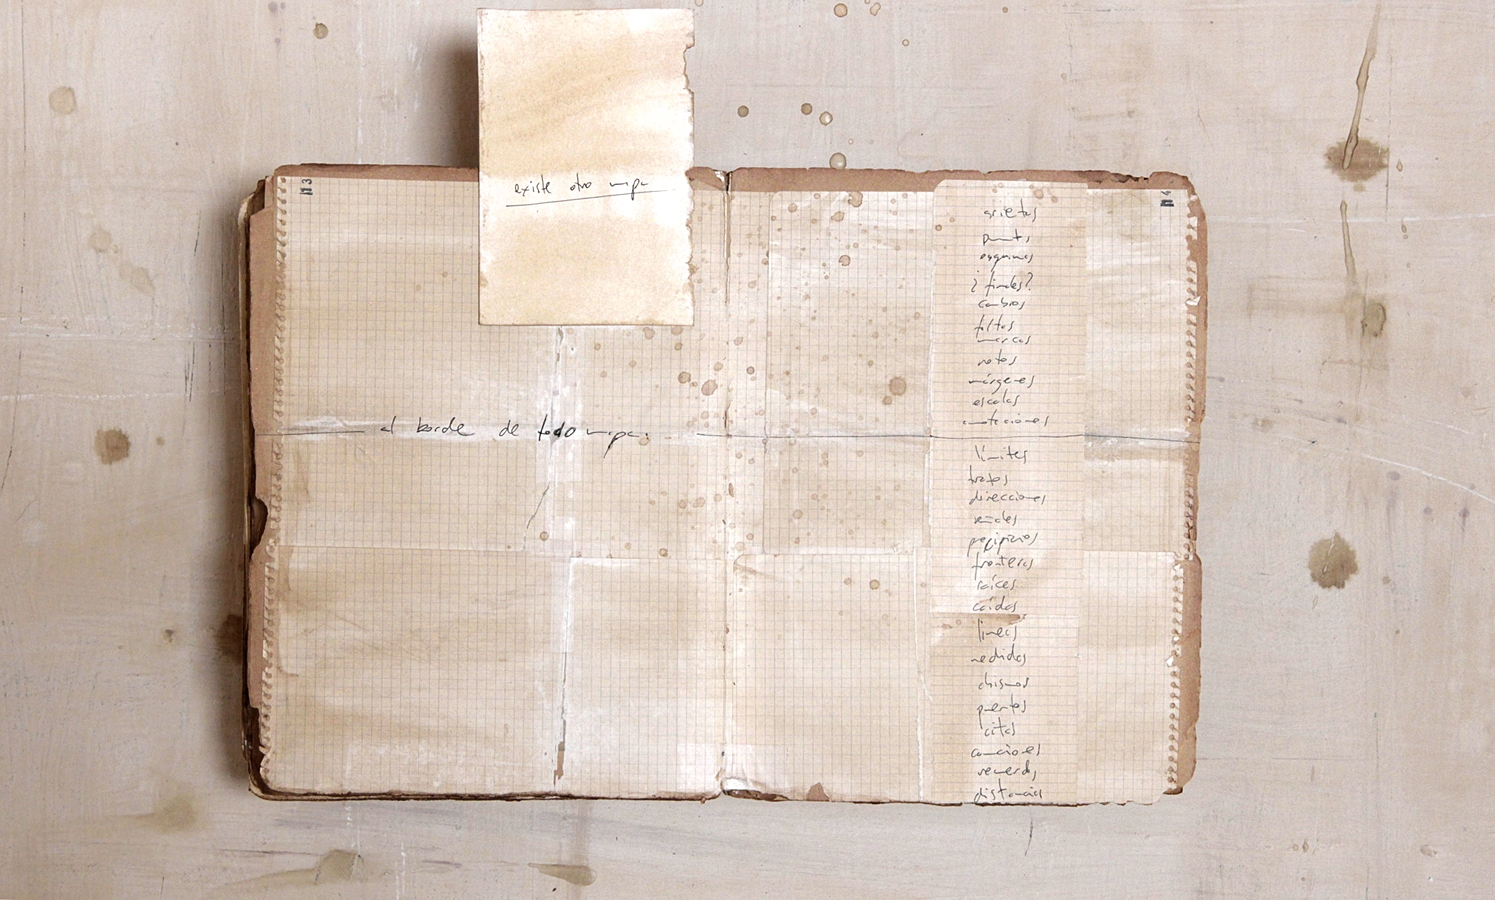 existe otro mapa
al borde de todo mapa.
grietas
puntos
esquinas
¿finales?
cambios
faltas
marcas
notas
márgenes
escalas
anotaciones
límites
trazos
direcciones
precipicios
fronteras
raíces
caídas
líneas
medidas
abismos
puertas
citas
canciones
recuerdos
distancias